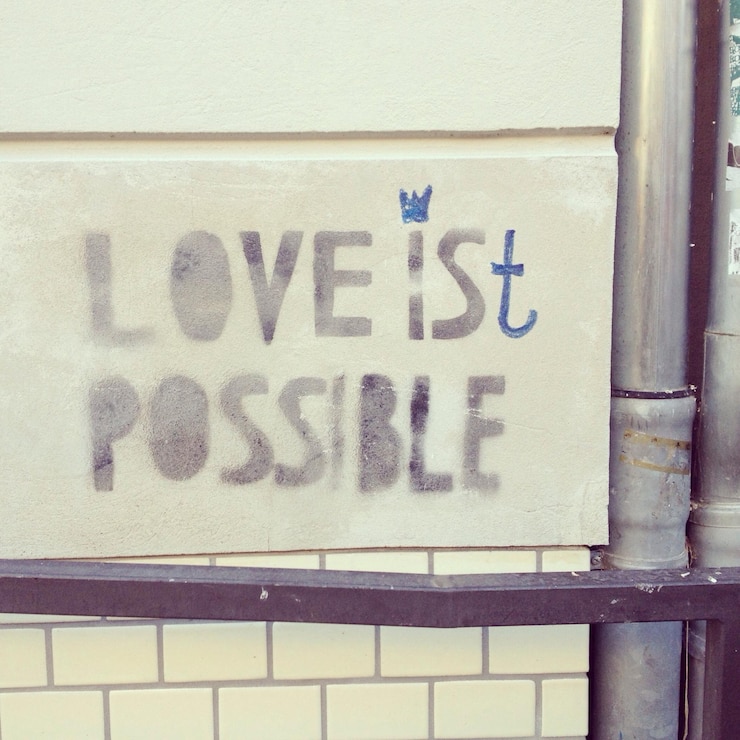 LOVE ISt
POSSIBLE